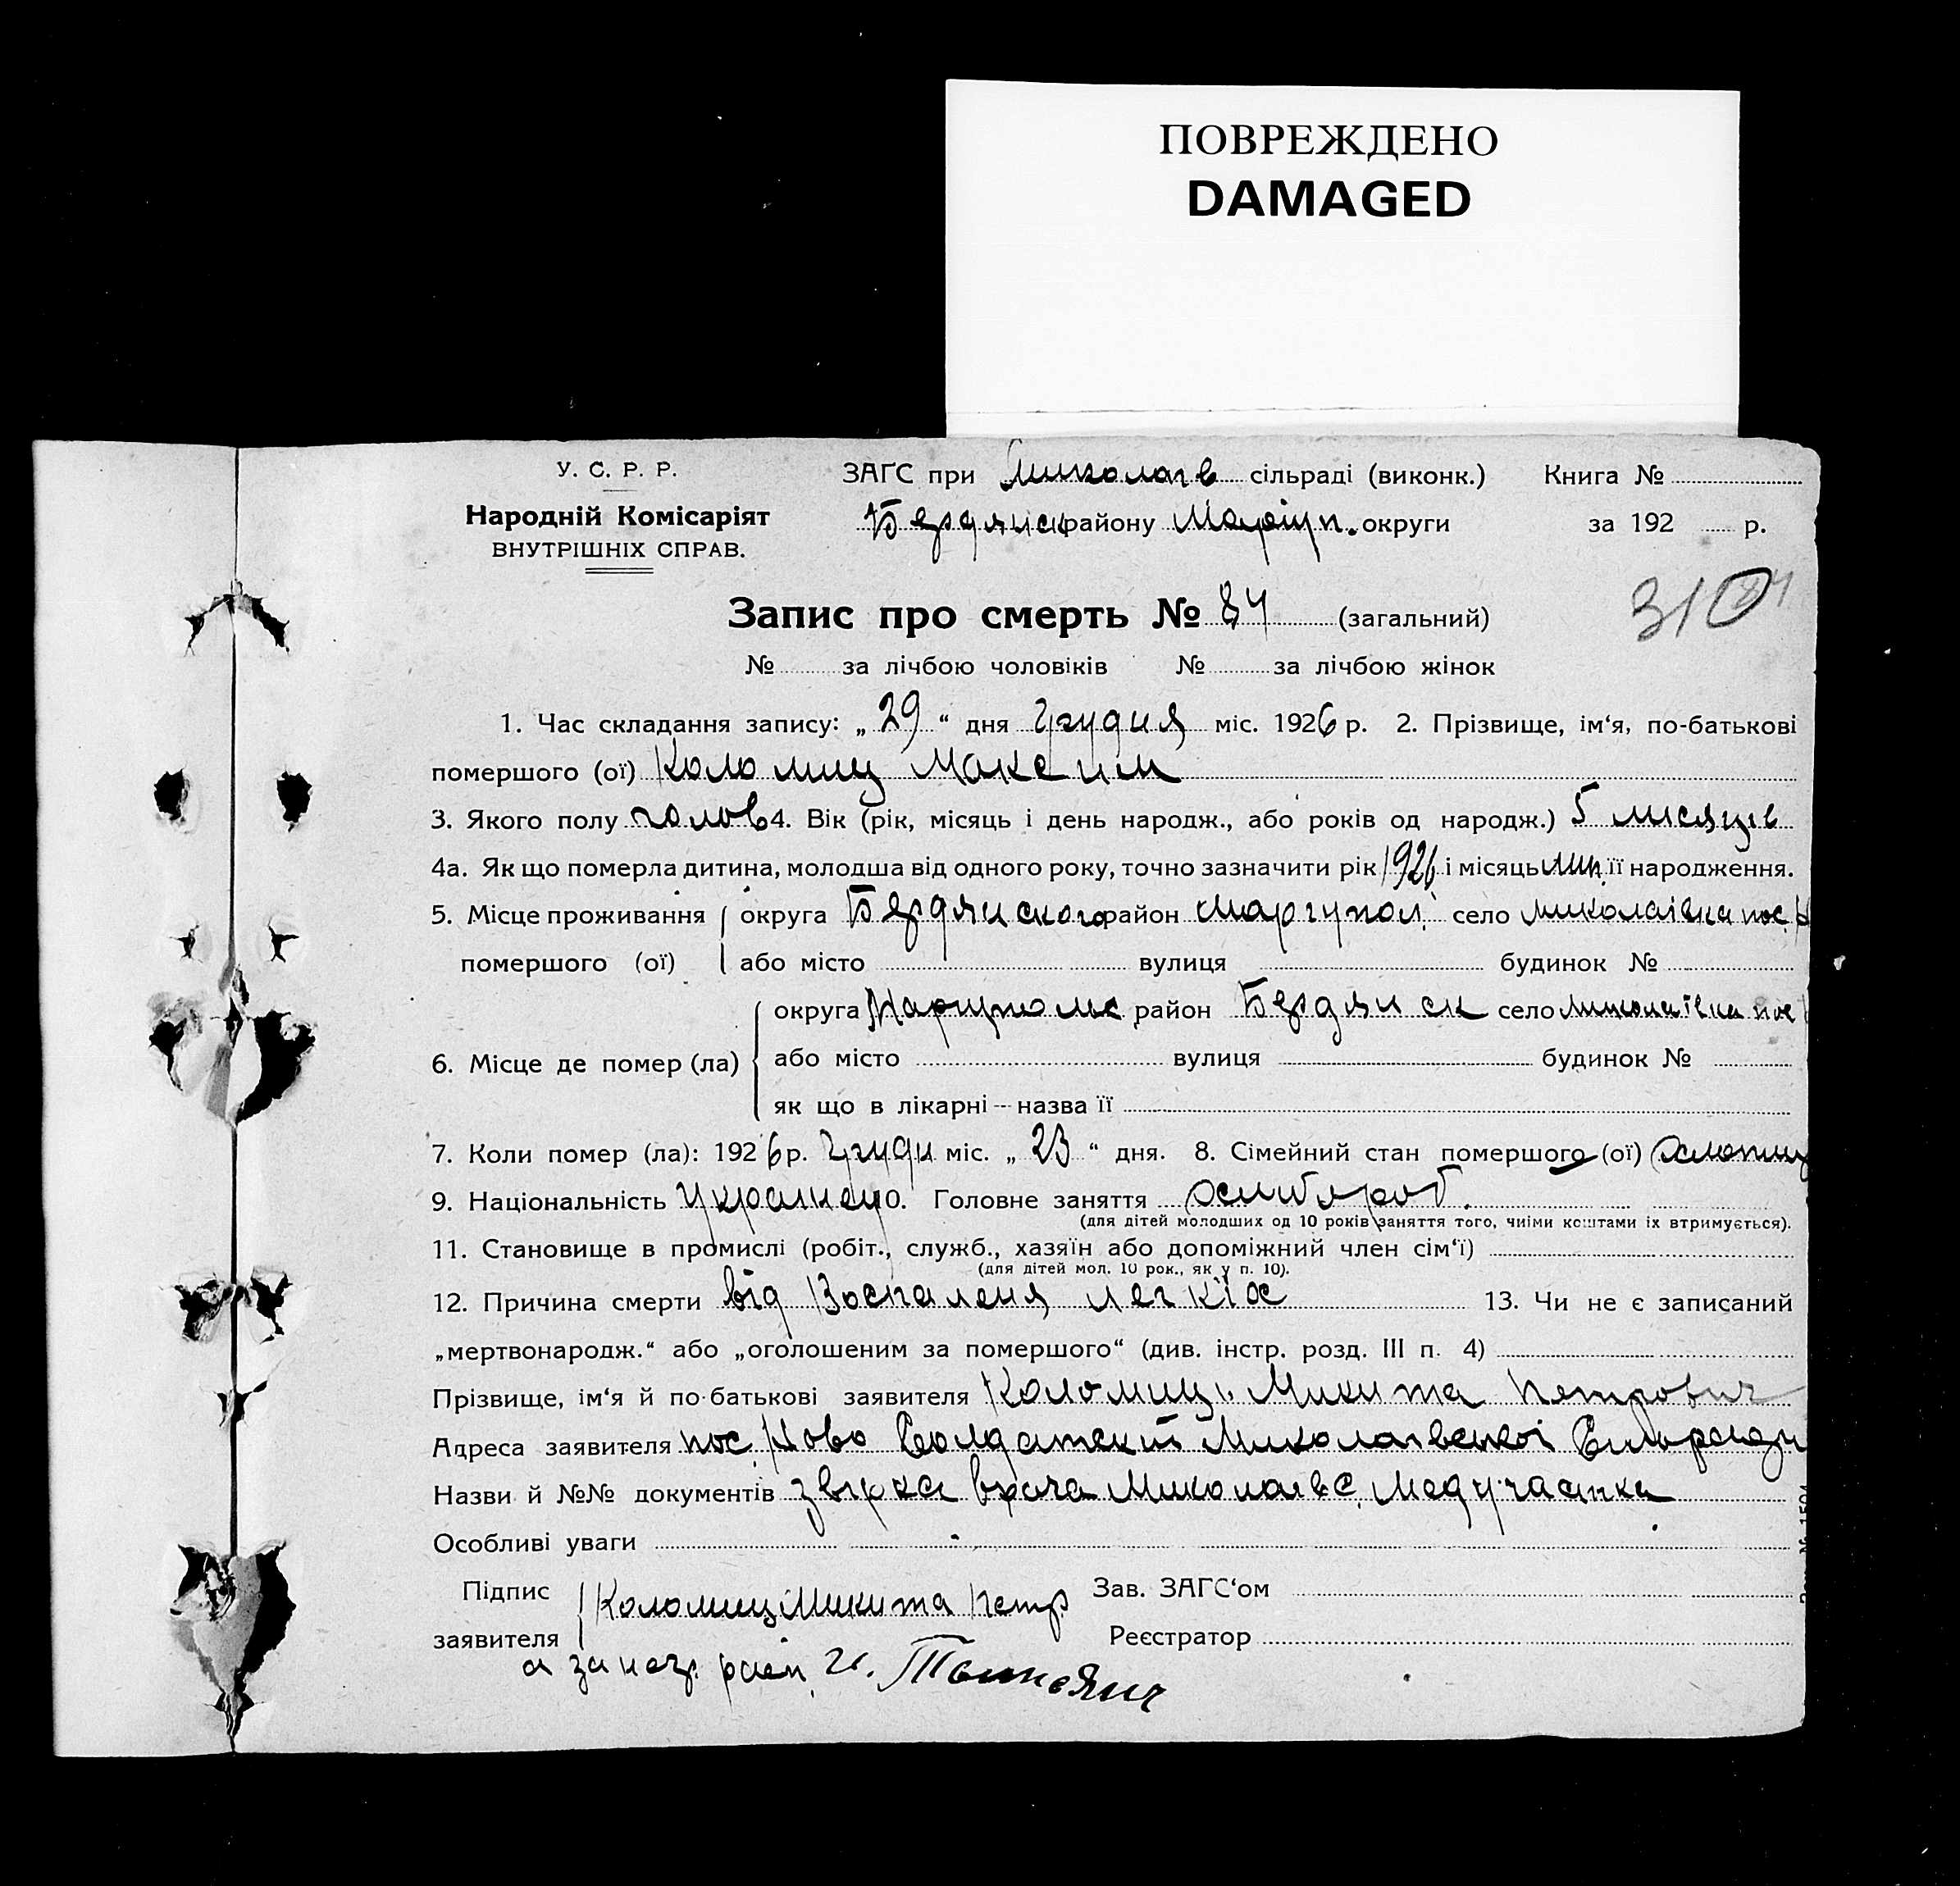 ПОВРЕЖДЕНО
DAMAGED
У. С. Р. Р.
Народній Комісаріят
ВНУТРІШНІХ СПРАВ.
ЗАГС при Миколаїв сільраді (виконк.) Книга №
Бердянськ району Маріуп. округи за 192 р.
Запис про смерть № 84 (загальний)
310
№ за лічбою чоловіків № за лічбою жінок
1. Час складання запису: „ 29 “ дня Грудня міс. 1926 р. 2. Прізвище, ім‘я, по-батькові
помершого (ої) Коломиц Максим
3. Якого полу чолов 4. Вік (рік, місяць і день народж., або років од народж.) 5 місяців
4а. Як що померла дитина, молодша від одного року, точно зазначити рік 1926 і місяць лип. її народження.
5. Місце проживання округа Бердянского район Маріупол. село Миколаівка пос. Н
помершого (ої) або місто вулиця будинок №
округа Маріупольс район Бердянськ село Миколаївка пос
6. Місце де помер (ла) або місто вулиця будинок №
як що в лікарні -- назва її
7. Коли помер (ла): 1926 р. Грудн міс. „ 23 “ дня. 8. Сімейний стан помершого (ої)
9. Національність Українец 10. Головне заняття хлибороб.
(для дітей молодших од 10 років заняття того, чиїми коштами їх втримується).
11. Становище в промислі (робіт., служб., хазяїн або допоміжний член сім‘ї)
(для дітей мол. 10 рок., як у п. 10).
12. Причина смерти від Воспаленя легкіх 13. Чи не є записаний
„мертвонародж.“ або „оголошеним за помершого“ (див. інстр. розд. III п. 4)
Прізвище, ім‘я й по-батькові заявителя Коломиц Микита Петрович
Адреса заявителя пос. Ново Солдатский Миколаївської Сильради
Назви й №№ документів врача Миколаївс. Медучастка
Особливі уваги
Підпис Коломиц Микита Петр Зав. ЗАГС‘ом
заявителя Реєстратор
а за